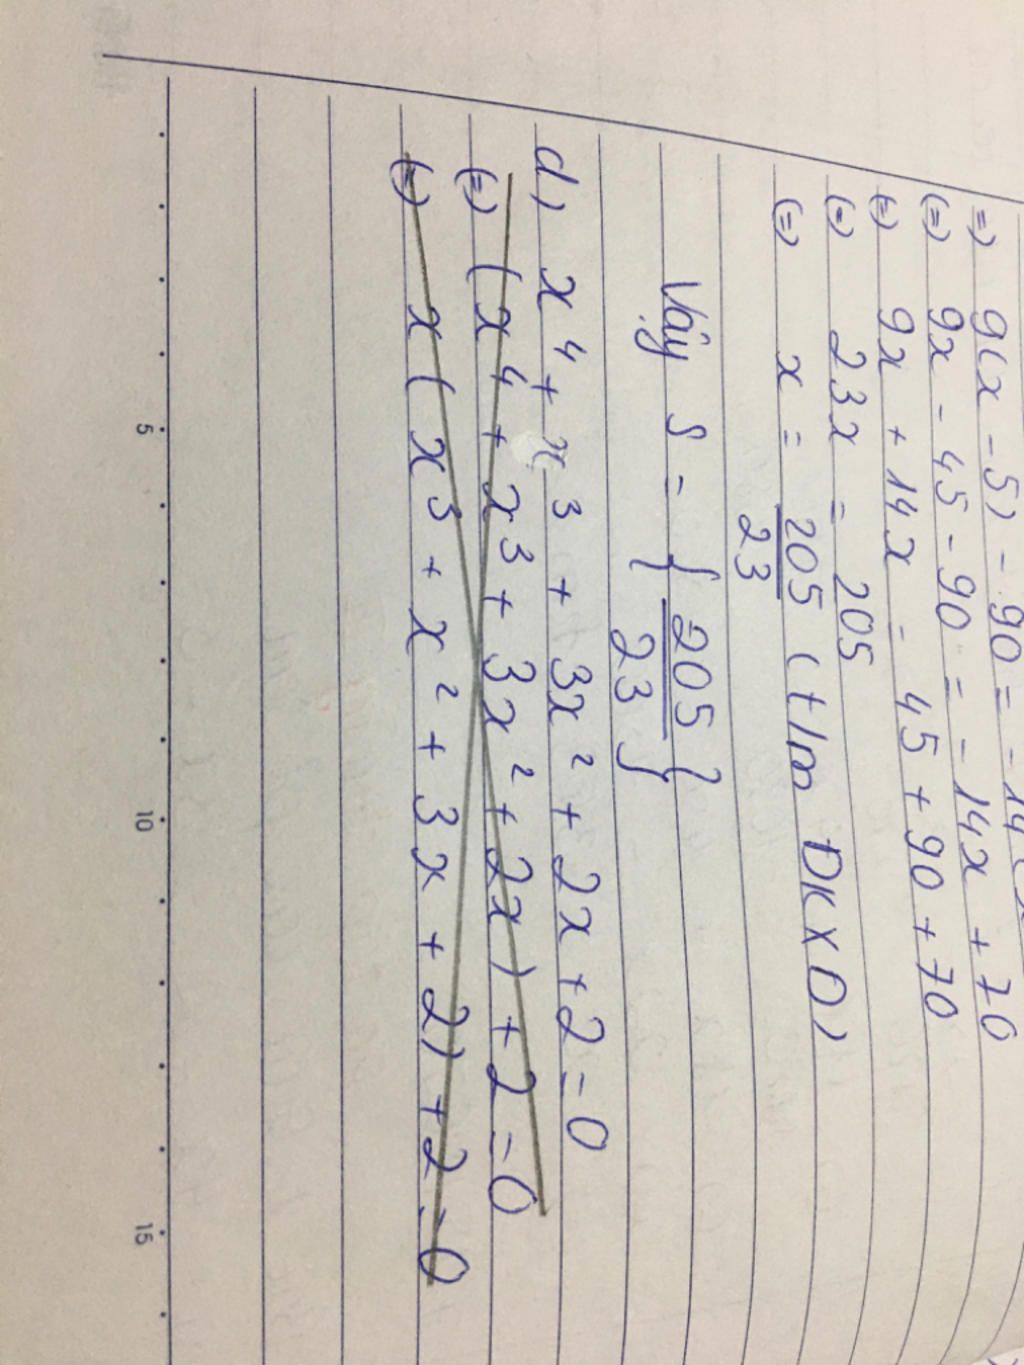 =) 9(x - 5) - 90 = - 14
(=) 9x - 45 - 90 = - 14x + 70
(=) 9x + 14x - 45 + 90 + 70
(=) 23x = 205
(=) x = 205/23 (t/m ĐKXĐ)
Vậy S = { 205/23 }
d) x⁴ + x³ + 3x² + 2x + 2 = 0
(=) (x⁴ + x³ + 3x² + 2x) + 2 = 0
(=) x ( x³ + x² + 3x + 2) + 2 = 0
5 10 15